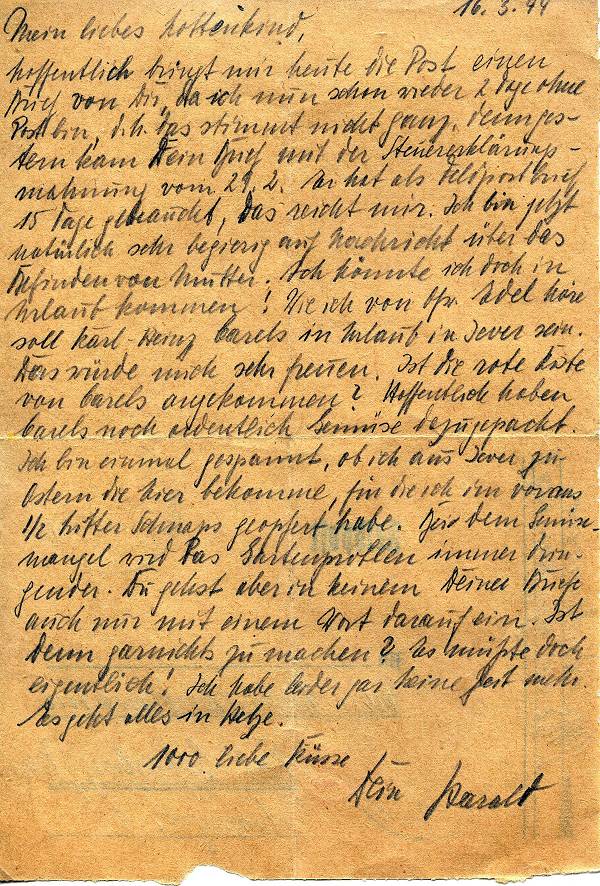 16. 3. 44
Mein liebes Kottenkind,
hoffentlich bringt mir heute die Post einen
Brief von Dir, da ich nun schon wieder 2 Tage ohne
Post bin, d. h. das stimmt nicht ganz, denn ges-
tern kam Dein Brief mit der Steuererklärungs-
mahnung vom 29. 2. Er hat als Feldpostbrief
15 Tage gebraucht, das reicht mir. Ich bin jetzt
natürlich sehr begierig auf Nachricht über das
Befinden von Mutter. Ich könnte ich doch in
Urlaub kommen! Wie ich von Ofw. Edel höre
soll Karl-Heinz Carels in Urlaub in Jever sein.
Das würde mich sehr freuen. Ist die rote Kiste
von Carels angekommen? Hoffentlich haben
Carels noch ordentlich Gemüse dazugepackt.
Ich bin einmal gespannt, ob ich aus Jever zu
Ostern die Eier bekomme, für die ich im voraus
1/2 Litter Schnaps geopfert habe. Bei dem Gemüse-
mangel wird das Gartenproblem immer drin-
gender. Du gehst aber in keinem Deiner Briefe
auch nur mit einem Wort darauf ein. Ist
denn garnichts zu machen? Es müßte doch
eigentlich! Ich habe leider gar keine Zeit mehr.
Es geht alles in Hetze.
1000 liebe Küsse
Dein Harald